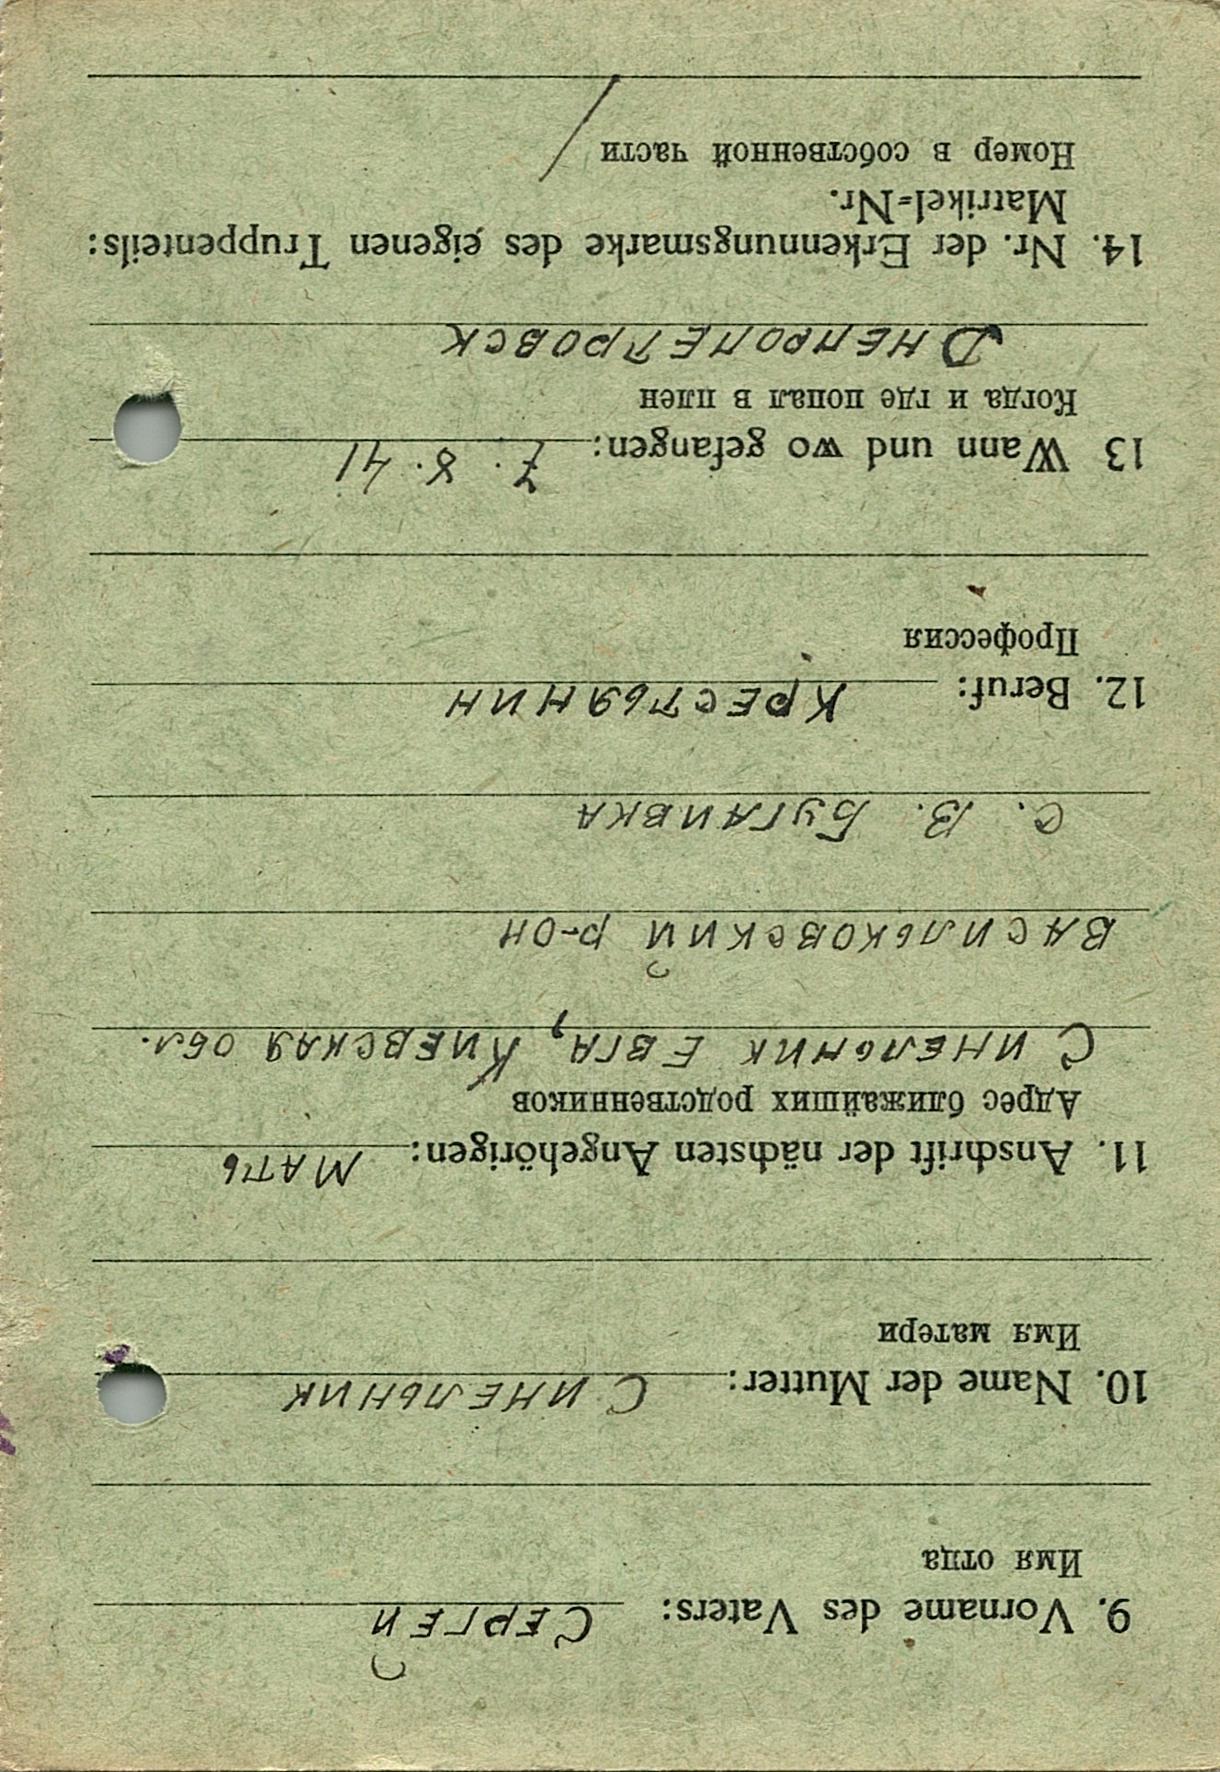 9. Vorname des Vaters: СЕРГЕЙ
Имя отца
10. Name der Mutter: СИНЕЛЬНИК
Имя матери
11. Anschrift der nächsten Angehörigen: МАТЬ
Адрес ближайших родственников
СИНЕЛЬНИК ЕВГА, КИЕВСКАЯ ОБЛ.
ВАСИЛЬКОВСКИЙ Р-ОН
С. В. БУГАИВКА
12. Beruf: КРЕСТЬЯНИН
Профессия
13 Wann und wo gefangen: 7. 8. 41
Когда и где попал в плен
ДНЕПРОПЕТРОВСК
14. Nr. der Erkennungsmarke des eigenen Truppenteils:
Matrikel=Nr.
Номер в собственной части /